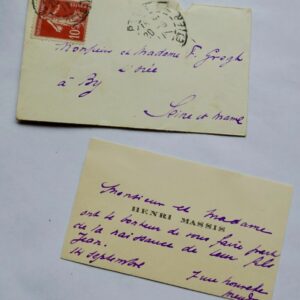 10c
Monsieur et Madame F. Grogh
L'Orée
à By
Seine et Marne
Monsieur et Madame
HENRI MASSIS
ont le bonheur de vous faire part
de la naissance de leur fils
Jean.
14 septembre